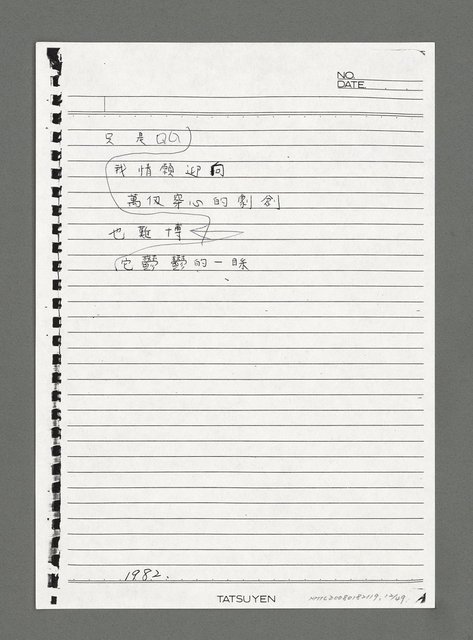 NO.
DATE
只是QQ
我情願迎向
萬仞穿心的劇創
也難博
它鬱鬱的一睬
1982.
TATSUYEN